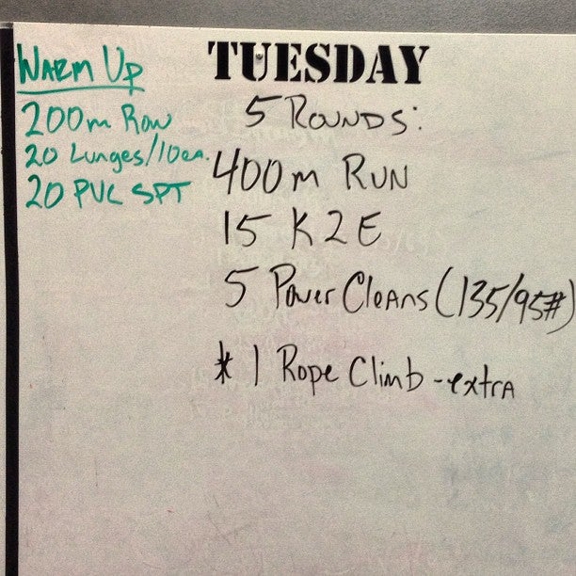 TUESDAY
Warm Up
200m Row
20 Lunges/10ea.
20 PVC SPT
5 Rounds:
400m Run
15 K2E
5 Power Cleans (135/95#)
* 1 Rope Climb - extra